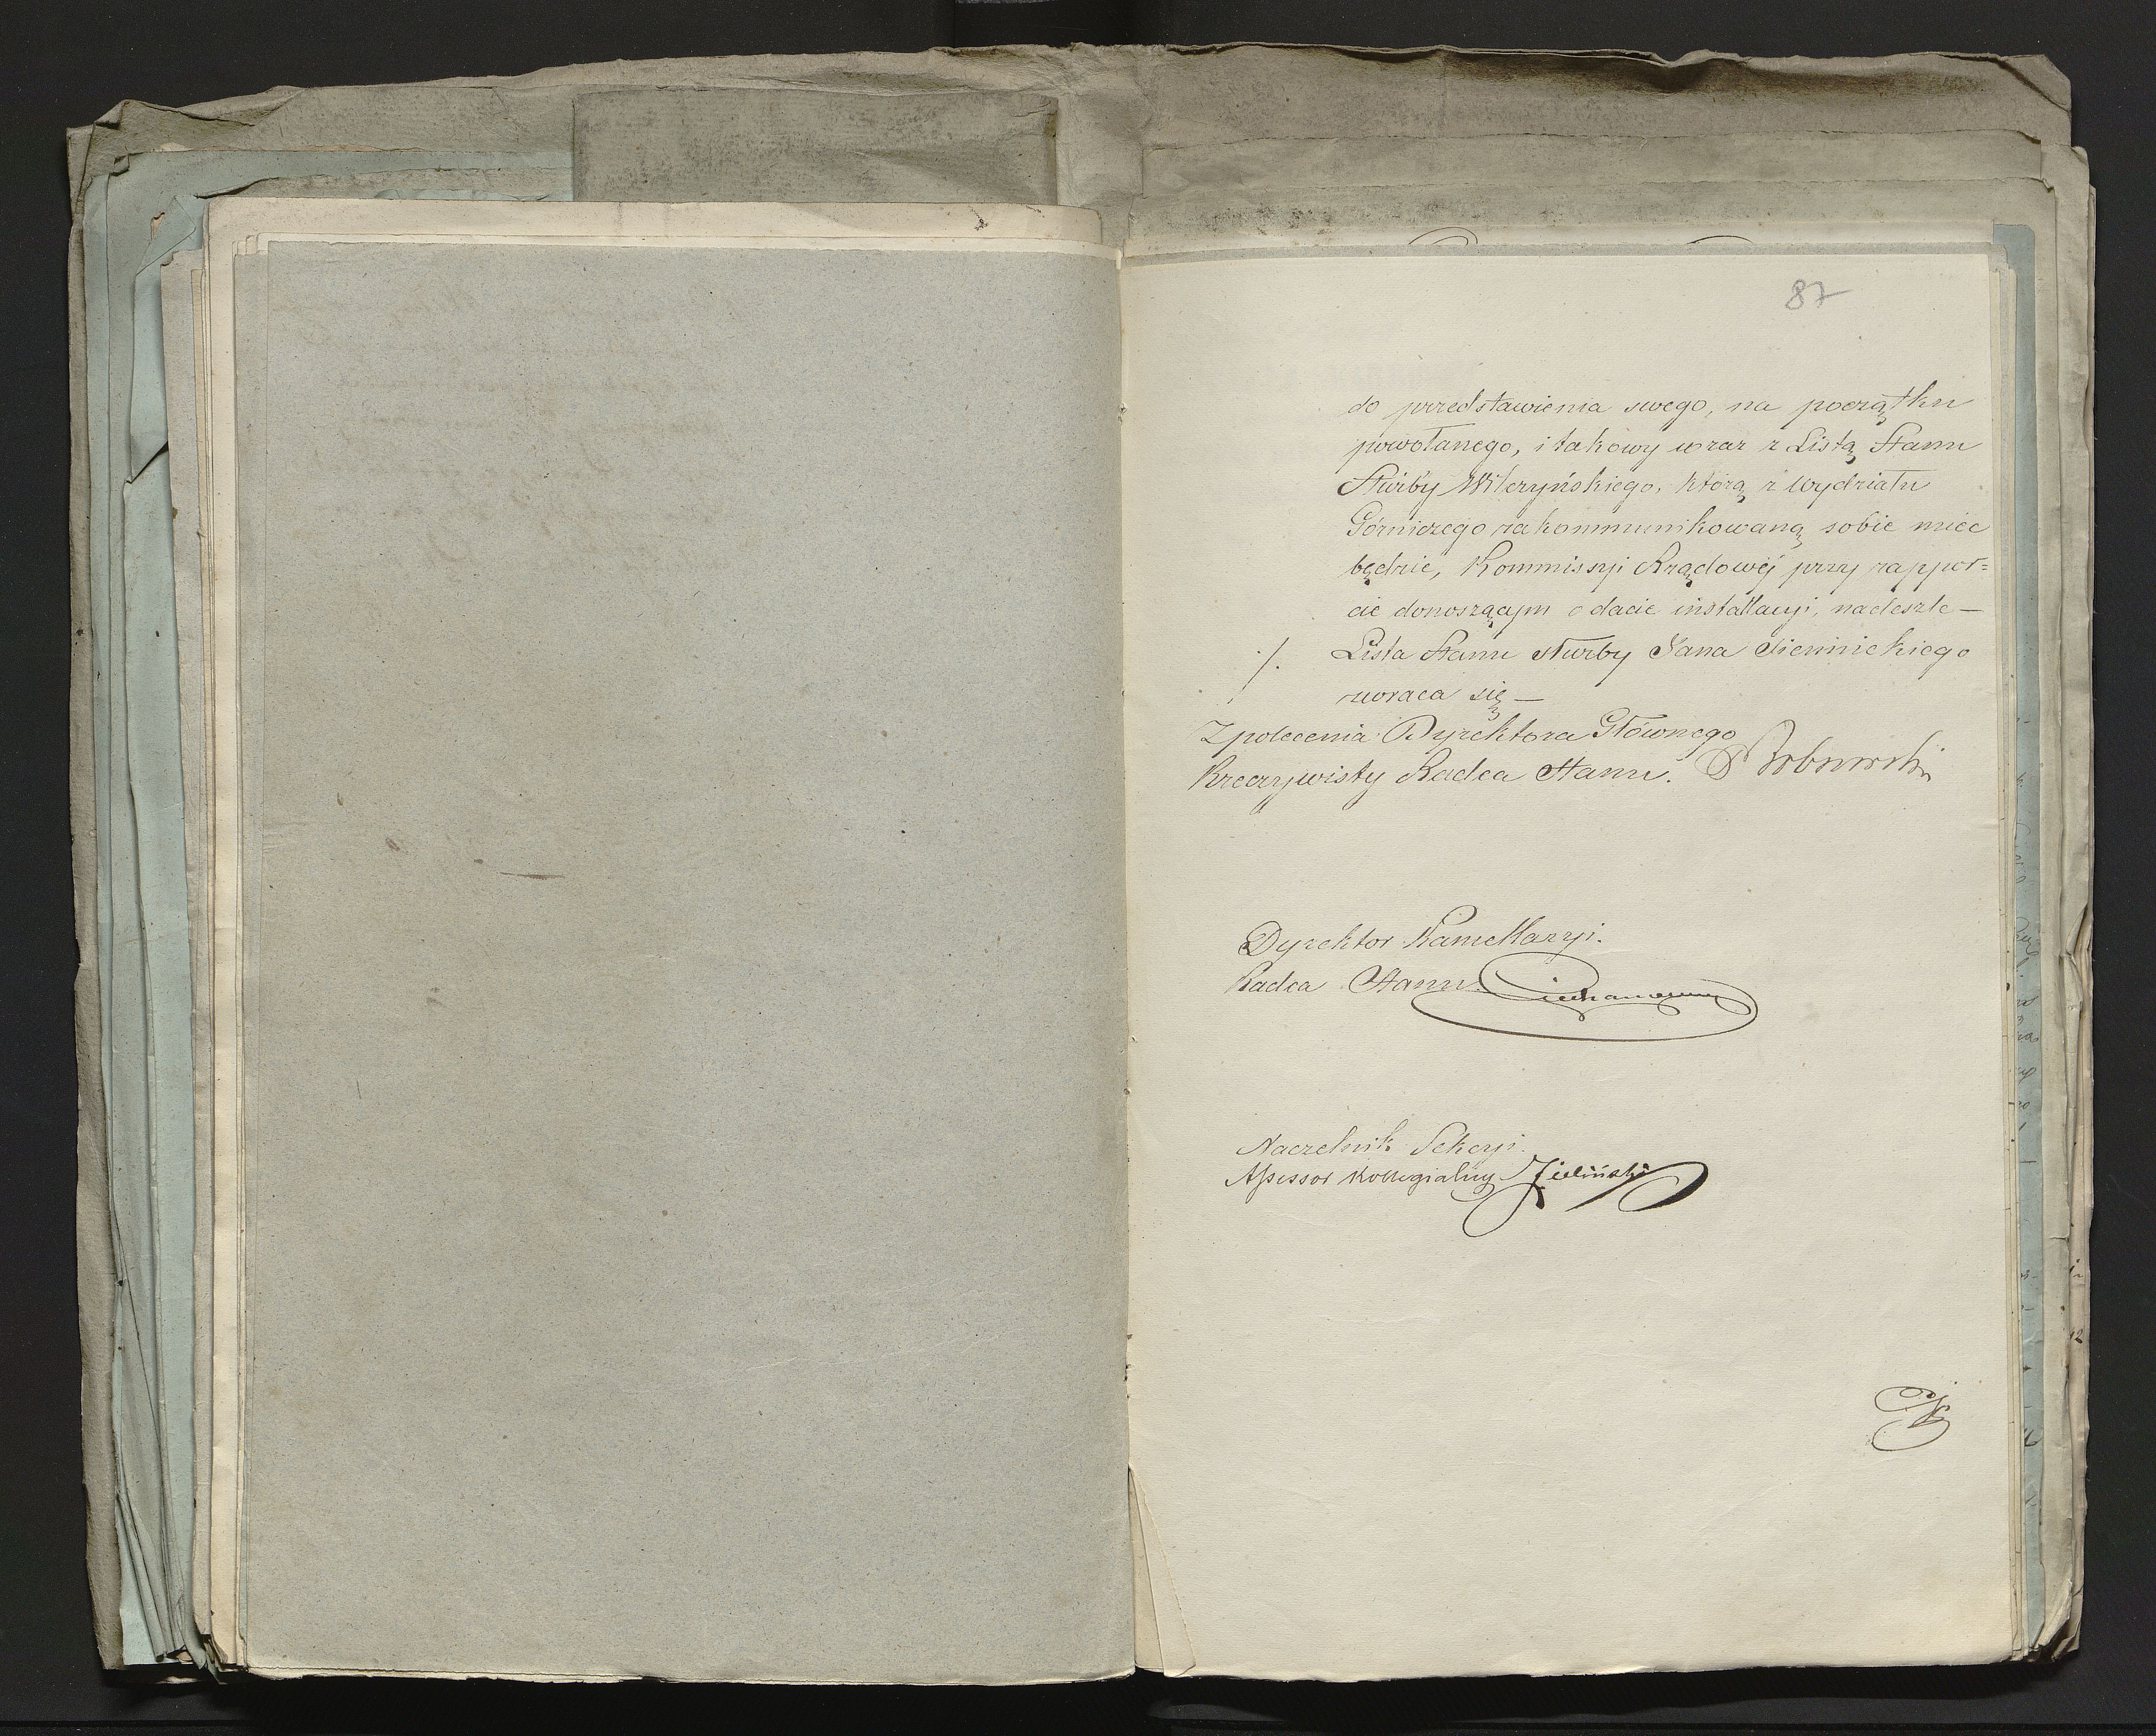 87
do przedstawienia swego, na początku
powołanego, i takowy wraz z Listą Stanu
Służby Wilczyńskiego, którą z Wydziału
Górniczego zakommunikowaną sobie mieć
będzie, Kommissyi Rządowéj przy rappor=
cie donoszącym o dacie installacyi, nadeszle —
./. Lista Stanu służby Jana Siemnickiego
zwraca się —
Z polecenia Dyrektora Głównego
Rzeczywisty Radca Stanu.
Dyrektor Kancellaryi.
Radca Stanu
Naczelnik Sekcyi.
Assessor Kollegialny Zieliński